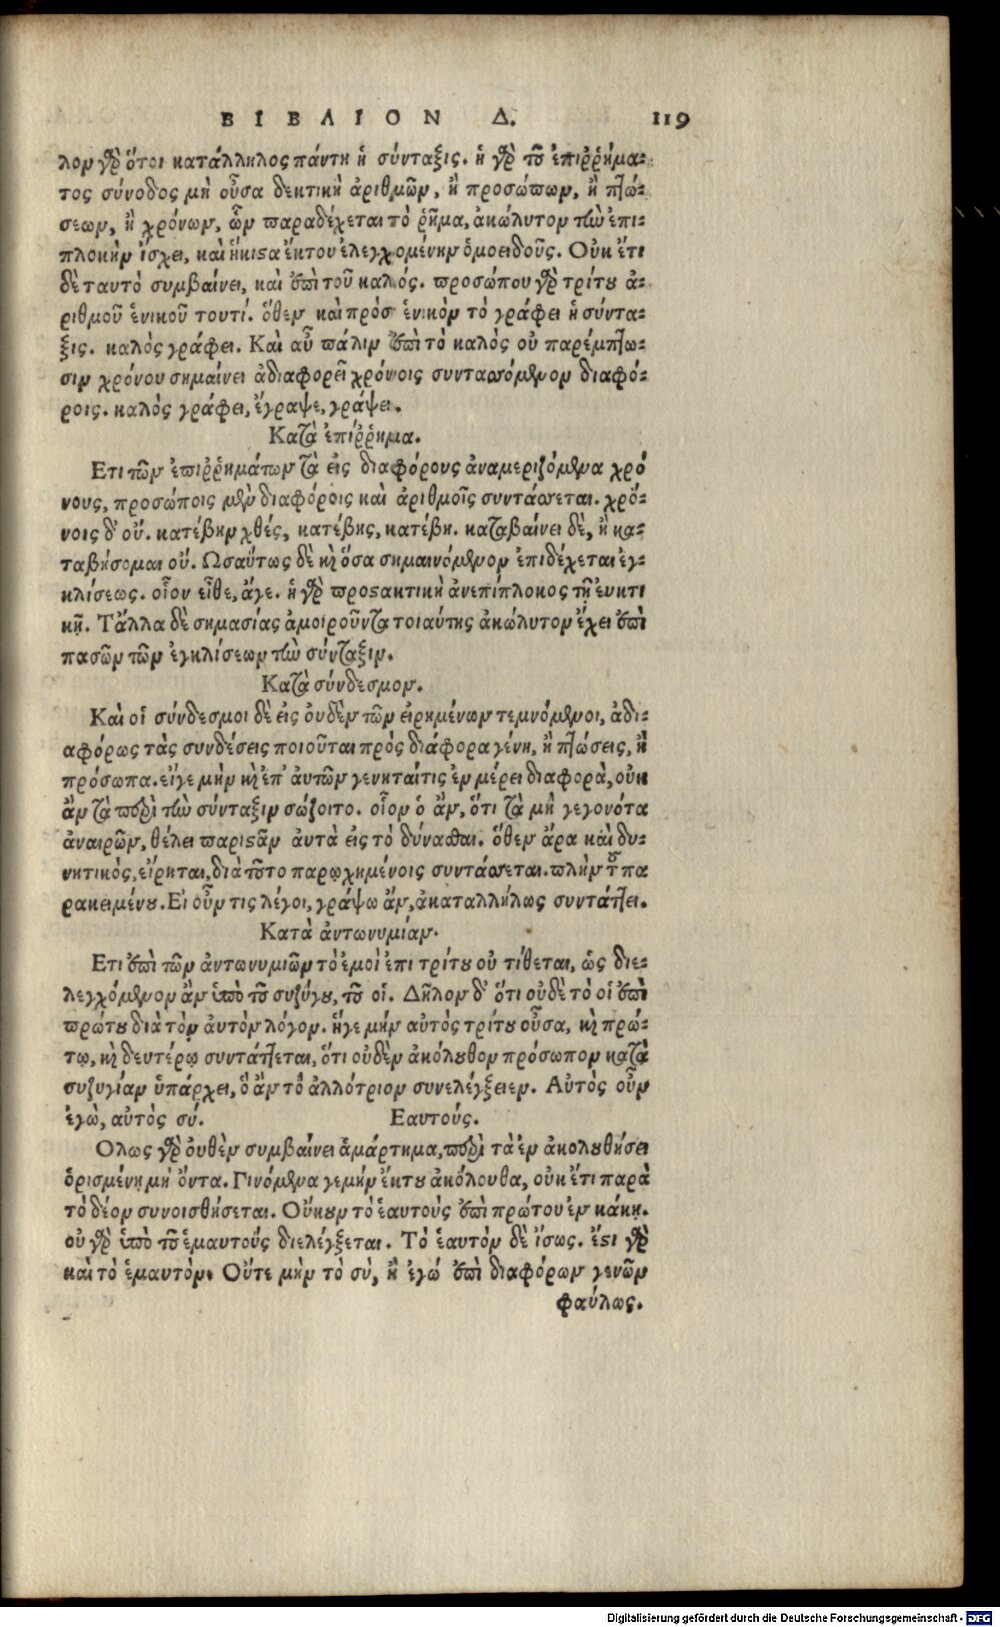 ΒΙΒΛΙΟΝ Δ. 119
λον γὰρ ὅτοι κατάλληλος πάντη ἡ σύνταξις. ἡ γὰρ τοῦ ἐπιῤῥήμα-
τος σύνοδος μὴ οὖσα δεκτικὴ ἀριθμῶν, ἢ προσώπων, ἢ πτώ-
σεων, ἢ χρόνων, ὧν παραδέχεται τὸ ῥῆμα, ἀκώλυτον τὴν ἐπι-
πλοκὴν ἴσχει, καὶ ἥκιστα ἔκτου ἐλεγχομένην ὁμοειδοῦς. Οὐκ ἔτι
δὲ ταυτὸ συμβαίνει, καὶ ἐπὶ τοῦ καλός. προσώπου γὰρ τρίτου ἀ-
ριθμοῦ ἑνικοῦ τουτί. ὅθεν καὶ πρὸσ ἑνικὸν τὸ γράφει ἡ σύντα-
ξις. καλὸς γράφει. Καὶ αὖ πάλιν ἐπὶ τὸ καλὸς οὐ παρέμπτω-
σιν χρόνου σημαίνει ἀδιαφορεῖ χρόνοις συντασσόμενον διαφό-
ροις. καλὸς γράφει, ἔγραψε, γράψει.
Κατὰ ἐπίῤῥημα.
Ετι τῶν ἐπιῤῥημάτων τὰ εἰς διαφόρους ἀναμεριζόμενα χρό
νους, προσώποις μὲν διαφόροις καὶ ἀριθμοῖς συντάσσεται. χρό-
νοις δ' οὔ. κατέβην χθές, κατέβης, κατέβη. καταβαίνει δὲ, ἢ κα-
ταβήσομαι οὔ. Ωσαύτως δὲ καὶ ὅσα σημαινόμενον ἐπιδέχεται ἐγ-
κλίσεως. οἷον εἴθε, ἄγε. ἡ γὰρ προστακτικὴ ἀνεπίπλοκος τῇ ἐυκτι
κῇ. Τἄλλα δὲ σημασίας ἀμοιροῦντα τοιαύτης ἀκώλυτον ἔχει ἐπὶ
πασῶν τῶν ἐγκλίσεων τὴν σύνταξιν.
Κατὰ σύνδεσμον.
Καὶ οἱ σύνδεσμοι δὲ εἰς ὀυδὲν τῶν εἰρημένων τεμνόμενοι, ἀδι-
αφόρως τὰς συνδέσεις ποιοῦται πρὸς διάφορα γένη, ἢ πτώσεις, ἢ
πρόσωπα. εἴγε μὴν καὶ ἐπ' ἀυτῶν γενηταί τις ἐν μέρει διαφορὰ, οὐκ
ἂν τὰ περὶ τὴν σύνταξιν σώζοιτο. οἷον ὁ ἂν, ὅτι τὰ μὴ γεγονότα
ἀναιρῶν, θέλει παριστᾶν ἀυτὰ εἰς τὸ δύνασθαι. ὅθεν ἄρα καὶ δυ-
νητικὸς, εἴρηται, διὰ τοῦτο παρῳχημένοις συντάσσεται. πλὴν τοῦ πα
ρακειμένου. Ει οὖν τις λέγοι, γράψω ἄν, ἀκαταλλήλως συντάττει.
Κατὰ ἀντωνυμίαν.
Ετι ἐπὶ τῶν ἀντωνυμιῶν τὸ ἐμοὶ ἐπι τρίτου οὐ τίθεται, ὡς διε-
λεγχόμενον ἂν ὑπὸ τοῦ συζύγου, τοῦ οἷ. Δῆλον δ' ὅτι οὐδὲ τὸ οἷ ἐπὶ
πρώτου διὰ τὸν ἀυτὸν λόγον. ἥγε μὴν αὐτὸς τρίτου οὖσα, καὶ πρώ-
τῳ, καὶ δευτέρῳ συντάττεται, ὅτι οὐδὲν ἀκόλουθον πρόσωπον κατὰ
συζυγίαν ὑπάρχει, ὃ ἂν τὸ ἀλλότριον συνελέγξειεν. Αὐτὸς οὖν
ἐγὼ, αὐτὸς σύ. Εαυτούς.
Ολως γὰρ ὀυθὲν συμβαίνει ἁμάρτημα, περὶ τὰ ἐν ἀκολουθήσει
ὁρισμένῃ μὴ ὄντα. Γινόμενα γεμὴν ἔκτου ἀκόλουθα, οὐκ ἔτι παρὰ
τὸ δέον συνοισθήσεται. Οὔκουν τὸ ἑαυτοὺς ἐπὶ πρώτου ἐν κάκη.
οὐ γὰρ ὑπὸ τοῦ ἐμαυτούς διελέγξεται. Τὸ ἑαυτὸν δὲ ἴσως. ἔστι γὰρ
καὶ τὸ ἐμαυτόν. Οὔτε μὴν τὸ σὺ, ἢ ἐγώ ἐπὶ διαφόρων γενῶν
φαύλως.
Digitalisierung gefördert durch die Deutsche Forschungsgemeinschaft - DFG